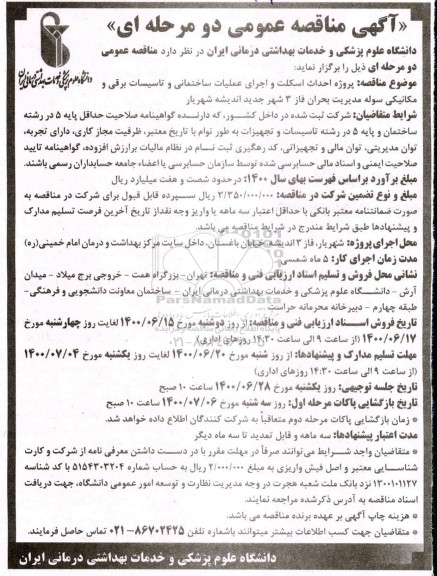 «آگهی مناقصه عمومی دو مرحله ای»
دانشگاه علوم پزشکی و خدمات بهداشتی درمانی ایران در نظر دارد مناقصه عمومی
دو مرحله ای ذیل را برگزار نماید:
موضوع مناقصه: پروژه احداث اسکلت و اجرای عملیات ساختمانی و تاسیسات برقی و
مکانیکی سوله مدیریت بحران فاز ۳ شهر جدید اندیشه شهریار
شرایط متقاضیان: شرکت ثبت شده در داخل کشور، که دارنده گواهینامه صلاحیت حداقل پایه ۵ در رشته
ساختمان و پایه ۵ در رشته تاسیسات و تجهیزات به طور توام با تاریخ معتبر، ظرفیت مجاز کاری، دارای تجربه،
توان مدیریتی، توان مالی و تجهیزاتی، کد رهگیری ثبت نام در نظام مالیات برارزش افزوده، گواهینامه تایید
صلاحیت ایمنی و اسناد مالی حسابرسی شده توسط سازمان حسابرسی یا اعضاء جامعه حسابداران رسمی باشند.
مبلغ برآورد براساس فهرست بهای سال ۱۴۰۰: در حدود شصت و هفت میلیارد ریال
مبلغ و نوع تضمین شرکت در مناقصه: ۳/۳۵۰/۰۰۰/۰۰۰ ریال سپرده قابل قبول برای شرکت در مناقصه به
صورت ضمانتنامه معتبر بانکی با حداقل اعتبار سه ماهه یا واریز وجه نقد از تاریخ آخرین فرصت تسلیم مدارک
و پیشنهادها طبق شرایط مندرج در شرایط مناقصه می باشد.
محل اجرای پروژه: شهریار، فاز ۳ اندیشه، خیابان باغستان، داخل سایت مرکز بهداشت و درمان امام خمینی(ره)
مدت زمان اجرای کار: ۵ ماه شمسی
نشانی محل فروش و تسلیم اسناد ارزیابی فنی و مناقصه: تهران - بزرگراه همت - خروجی برج میلاد - میدان
آرش - دانشگاه علوم پزشکی و خدمات بهداشتی درمانی ایران - ساختمان معاونت دانشجویی و فرهنگی-
طبقه چهارم - دبیرخانه محرمانه حراست
تاریخ فروش اسناد ارزیابی فنی و مناقصه: از روز دوشنبه مورخ ۱۴۰۰/۰۶/۱۵ لغایت روز چهارشنبه مورخ
۱۴۰۰/۰۶/۱۷ (از ساعت ۹ الی ساعت ۱۴:۳۰ روزهای اداری)
مهلت تسلیم مدارک و پیشنهادها: از روز شنبه مورخ ۱۴۰۰/۰۶/۲۰ لغایت روز یکشنبه مورخ ۱۴۰۰/۰۷/۰۴
(از ساعت ۹ الی ساعت ۱۴:۳۰ روزهای اداری)
تاریخ جلسه توجیهی: روز یکشنبه مورخ ۱۴۰۰/۰۶/۲۸ ساعت ۱۰ صبح
تاریخ بازگشایی پاکات مرحله اول: روز سه شنبه مورخ ۱۴۰۰/۰۷/۰۶ ساعت ۱۰ صبح
* زمان بازگشایی پاکات مرحله دوم متعاقباً به شرکت کنندگان اطلاع داده خواهد شد.
مدت اعتبار پیشنهادها: سه ماهه و قابل تمدید تا سه ماه دیگر
* متقاضیان واجد شرایط می‌توانند صرفاً در مهلت مقرر با در دست داشتن معرفی نامه از شرکت و کارت
شناسایی معتبر و اصل فیش واریزی به مبلغ ۲/۰۰۰/۰۰۰ ریال به حساب شماره ۵۱۵۴۳۰۳۲۰۴ با کد شناسه
۱۳۰۰۱۰۱۱۲۷ نزد بانک ملت شعبه هجرت در وجه مدیریت نظارت و توسعه امور عمومی دانشگاه، جهت دریافت
اسناد مناقصه به آدرس ذکرشده مراجعه نمایند.
* هزینه چاپ آگهی بر عهده برنده مناقصه می باشد.
* متقاضیان جهت کسب اطلاعات بیشتر میتوانند باشماره تلفن ۸۶۷۰۲۴۲۵-۰۲۱ تماس حاصل فرمایند.
دانشگاه علوم پزشکی و خدمات بهداشتی درمانی ایران